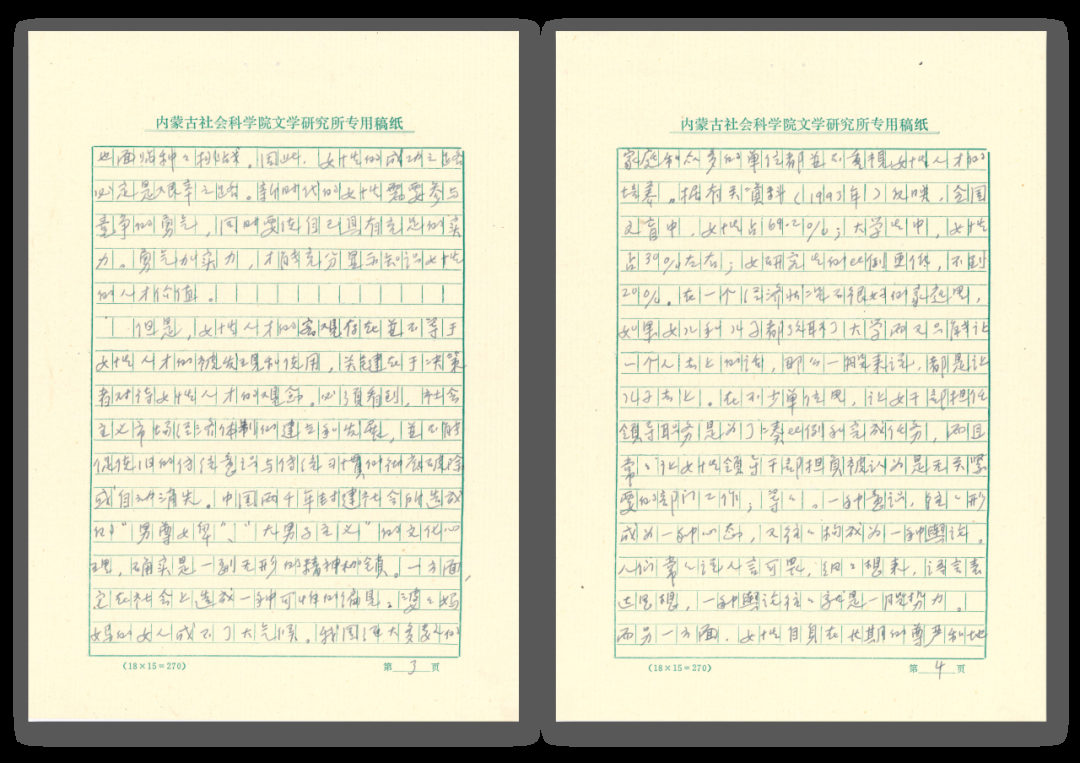 内蒙古社会科学院文学研究所专用稿纸
也面临种种挑战。因此,女性的成功之路
必定是艰辛之路。新时代的女性需要参与
竞争的勇气,同时要使自己具有充足的实
力。勇气加实力,才能充分显示知识女性
的人才价值。
但是,女性人才的客观存在并不等于
女性人才的被发现和使用,关键在于决策
者对待女性人才的观念。必须看到,社会
主义市场经济体制的建立和发展,并不能
促使旧的传统意识与传统习惯的彻底破除
或自动消失。中国两千年封建社会所造成
的“男尊女卑”、“大男子主义”的文化心
理,确实是一副无形的精神枷锁。一方面,
它在社会上造成一种可怕的偏见:婆婆妈
妈的女人成不了大气候。我国绝大多数的
(18×15=270)
第 3 页
内蒙古社会科学院文学研究所专用稿纸
家庭和众多的单位都并不重视女性人才的
培养。据有关资料(1992年)反映,全国
文盲中,女性占69.2%;大学生中,女性
占39%左右;女研究生的比例更低,不到
20%。在一个经济状况不很好的家庭里,
如果女儿和儿子都考取了大学而又只能让
一个人去上的话,那么一般来说,都是让
儿子去上。在不少单位里,让女干部担任
领导职务是为了凑比例和完成任务,而且
常常让女性领导干部担负被认为是无关紧
要的部门工作;等等。一种意识,往往形
成为一种心态,又往往构成为一种舆论。
人们常常说人言可畏,细细想来,语言表
达思想,一种舆论往往就是一股势力。
而另一方面,女性自身在长期的尊严和地
(18×15=270)
第 4 页